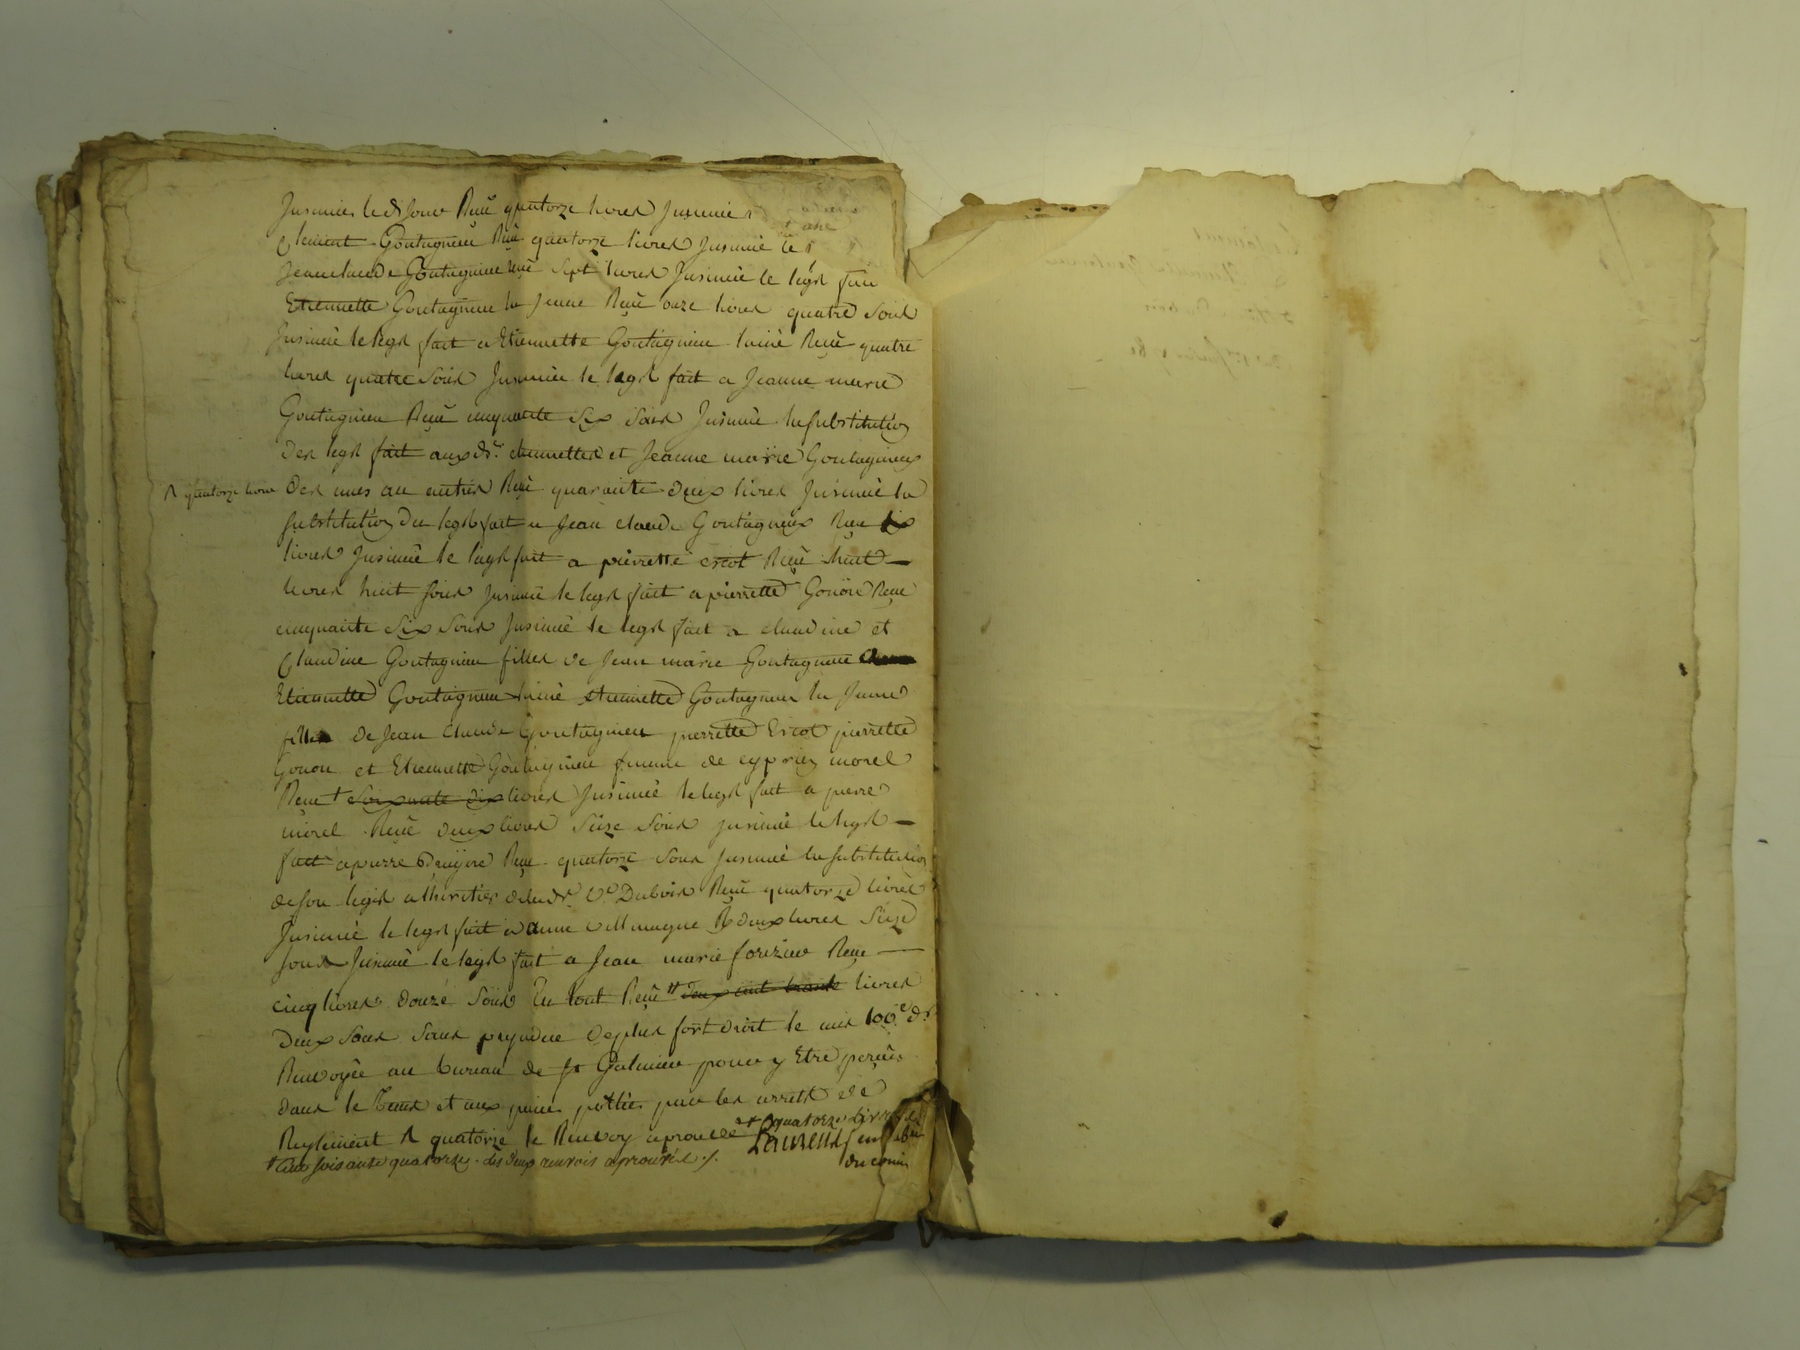 Jnsinué led. Jour Reçu quatorze livres Jnsinué
Clement Goutagnieu Reçu quatorze livres Jnsinué le
Jeanclaude Goutagnieu Reçu sept livres Jnsinué le legs fait
Etiennette Goutagnieu la Jeune Reçu onze livres quatre sous
Jnsinué le legs fait a Etiennette Goutagnieu lainé Reçu quatre
livres quatre sous Jnsinué le legs fait a Jeanne marie
Goutagnieu Reçu cinquante six sous Jnsinué la substitution
des legs fait aux dt. etiennettes et Jeanne marie Goutagnieux
Λ quatorze livres
des unes au autres Reçu quarante deux livres Jnsinué la
substitution du legs fait a Jean claude Goutagnieux Reçu
livres Jnsinué le legs fait a pierrette ercot Reçu huit
livres huit sous Jnsinué le legs fait a pierrette Gonon Reçu
cinquante six sous Jnsinué le legs fait a claudine et
Claudine Goutagnieu filles de Jean marie Goutagnieu
Etiennette Goutagnieu lainé etiennette Goutagnieu la Jeune
filles de Jean Claude Goutagnieu pierrette Ercot pierrette
Gonon et Etiennette Goutagnieu femme de cyprien morel
Reçu + soixante dix livres Jnsinué le legs fait a pierre
morel Reçu deux livres seize sous Jnsinué le legs
fait a pierre Reçu quatorze sous Jnsinué la substitution
de son legs a lheritier deladt. ve. Dubois Reçu quatorze livres
Jnsinué le legs fait a anne villemagne R deux livres seize
sous Jnsinué le legs fait a Jean marie forizier Reçu
cinq livres douze sous En tout Reçu # deux cent trante livres
Deux sous sans prejudice deplus fort droit le mis 100e. dr.
Renvoyée au bureau de st Galmier pour y Etre perçu
dans le tems et aux peines portées par les arrets de
Reglement Λ quatorze le Renvoy aprouvé # quatorze livres
Laurenson
+ soisante quatorze. les deux renvois aprouvés ./.
du comis